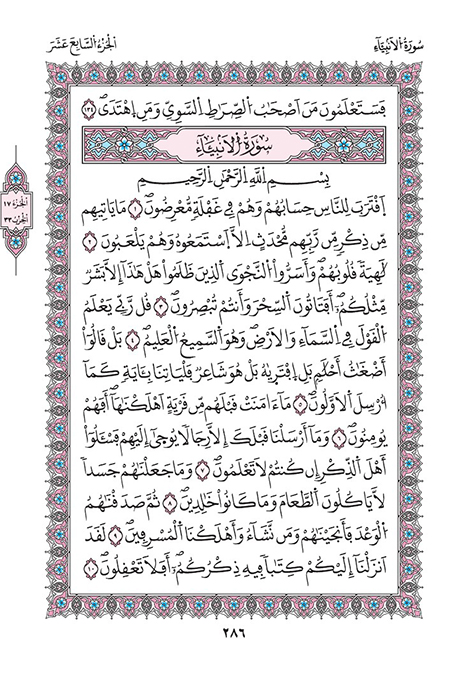 سُورَةُ الْأَنْبِيَاءِ
الجُزْءُ السَّابِعَ عَشَرَ
فَسَتَعْلَمُونَ مَنَ اَصْحَٰبُ الصِّرَٰطِ السَّوِيِّ وَمَنِ اِهْتَدَىٰۖ ١٣٤
سُورَةُ الْأَنْبِيَآءِ
بِسْمِ اللَّهِ الرَّحْمَٰنِ الرَّحِيمِ
اَقْتَرَبَ لِلنَّاسِ حِسَابُهُمْ وَهُمْ فِي غَفْلَةٖ مُّعْرِضُونَۖ ١ مَا يَاتِيهِم
مِّن ذِكْرٖ مِّن رَّبِّهِم مُّحْدَثٍ اِلَّا اَسْتَمَعُوهُ وَهُمْ يَلْعَبُونَ ٢
لَٰهِيَةٗ قُلُوبُهُمْۖ وَأَسَرُّواْ النَّجْوَى الذِينَ ظَلَمُواْ هَلْ هَٰذَا إِلَّا بَشَرٞ
مِّثْلُكُمُۥٓۖ أَفَتَاتُونَ السِّحْرَ وَأَنتُمْ تُبْصِرُونَۖ ٣ قُل رَّبِّي يَعْلَمُ
الْقَوْلَ فِي السَّمَآءِ وَالَارْضِۖ وَهُوَ السَّمِيعُ الْعَلِيمُۖ ٤ بَلْ قَالُوٓاْ
أَضْغَٰثُ أَحْلَٰمِۢ بَلِ اِفْتَرَىٰهُ بَلْ هُوَ شَاعِرٞ فَلْيَاتِنَا بِـَٔايَةٖ كَمَآ
أُرْسِلَ الَاوَّلُونَۖ ٥ مَآ ءَامَنَتْ قَبْلَهُم مِّن قَرْيَةٍ اَهْلَكْنَٰهَآۖ أَفَهُمْ
يُومِنُونَۖ ٦ وَمَآ أَرْسَلْنَا قَبْلَكَ إِلَّا رِجَالٗا يُوحَىٰٓ إِلَيْهِمْۖ فَسْـَٔلُوٓاْ
أَهْلَ الذِّكْرِ إِن كُنتُمْ لَا تَعْلَمُونَۖ ٧ وَمَا جَعَلْنَٰهُمْ جَسَداٗ
لَّا يَاكُلُونَ الطَّعَامَ وَمَا كَانُواْ خَٰلِدِينَۖ ٨ ثُمَّ صَدَقْنَٰهُمُ
الْوَعْدَ فَأَنجَيْنَٰهُمْ وَمَن نَّشَآءُ وَأَهْلَكْنَا الْمُسْرِفِينَۖ ٩ لَقَدَ
اَنزَلْنَآ إِلَيْكُمْ كِتَٰباٗ فِيهِ ذِكْرُكُمُۥٓۖ أَفَلَا تَعْقِلُونَۖ ١٠
الْجُزْءُ ١٧
الْحِزْبُ ٣٣
٢٨٦